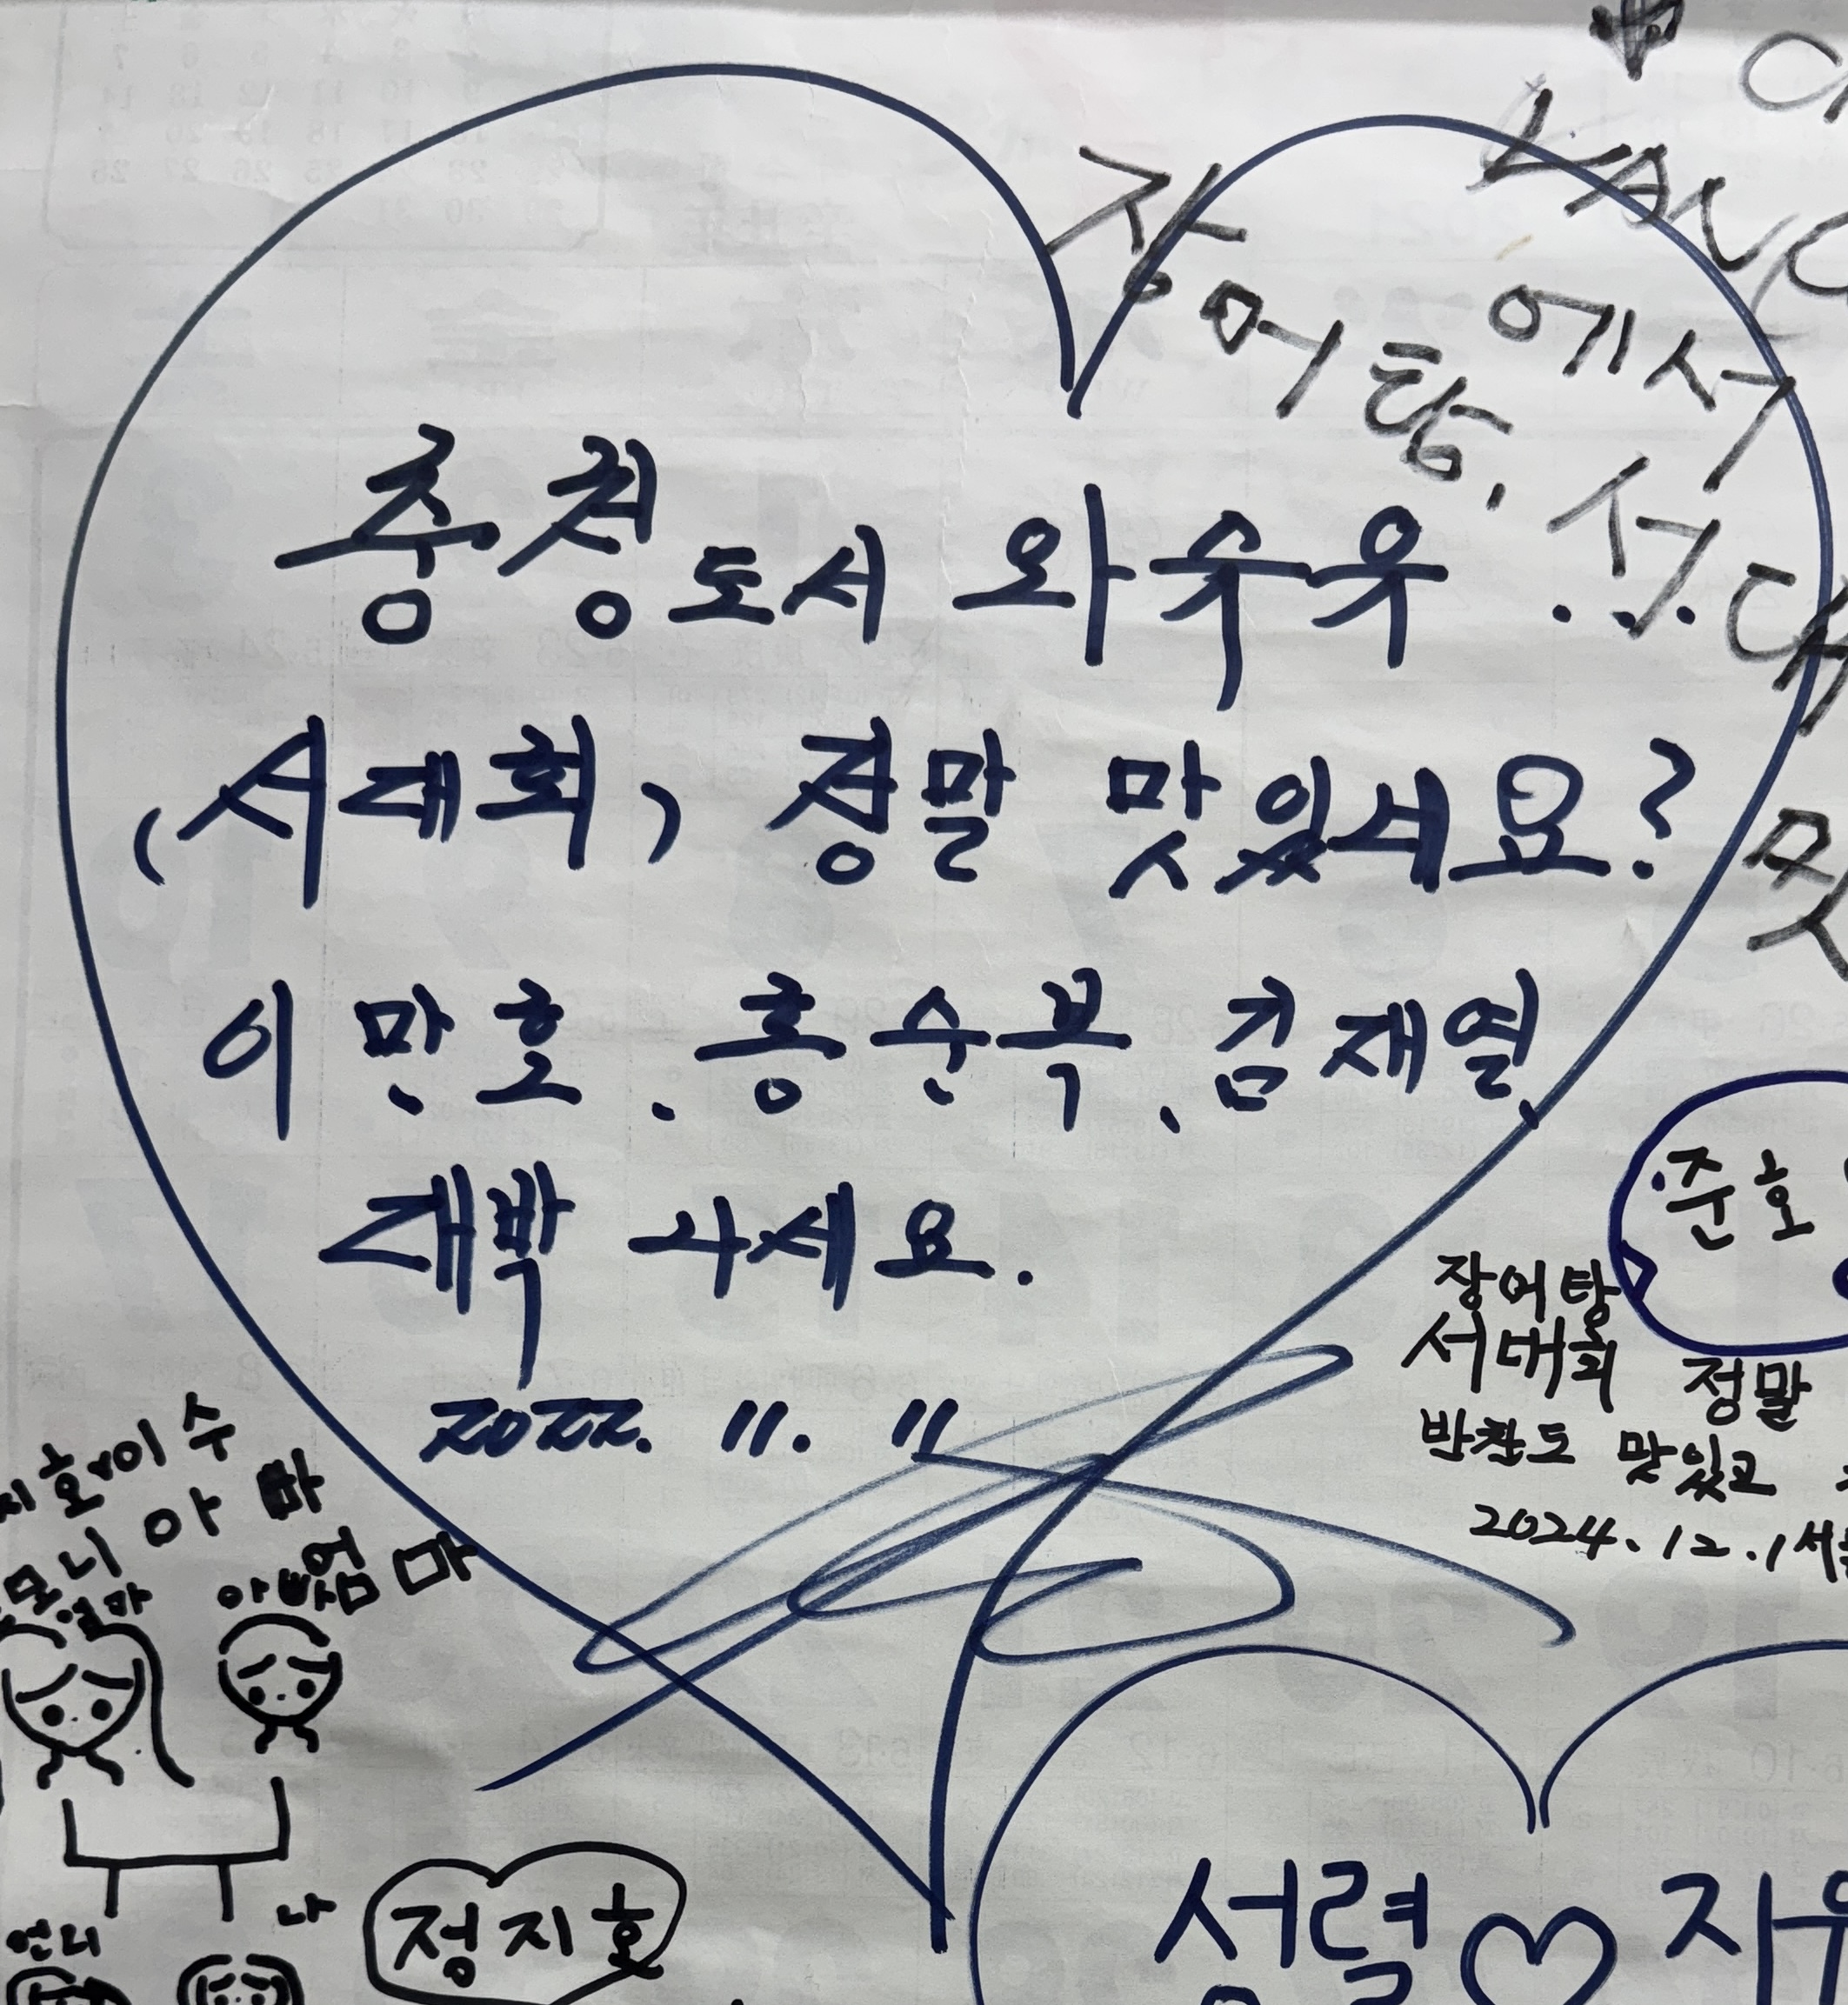 장어탕, 서대
에서
충청도서 와수유...
(서대회) 정말 맛있서요?
이만호. 홍순목, 김재열,
대박 나세요.
2022. 11. 11
준호
장어탕
서대회 정말
반찬도 맛있고
2024.12.1
지호이수
아빠
엄마
언니 나
정지호
성렬♡지우